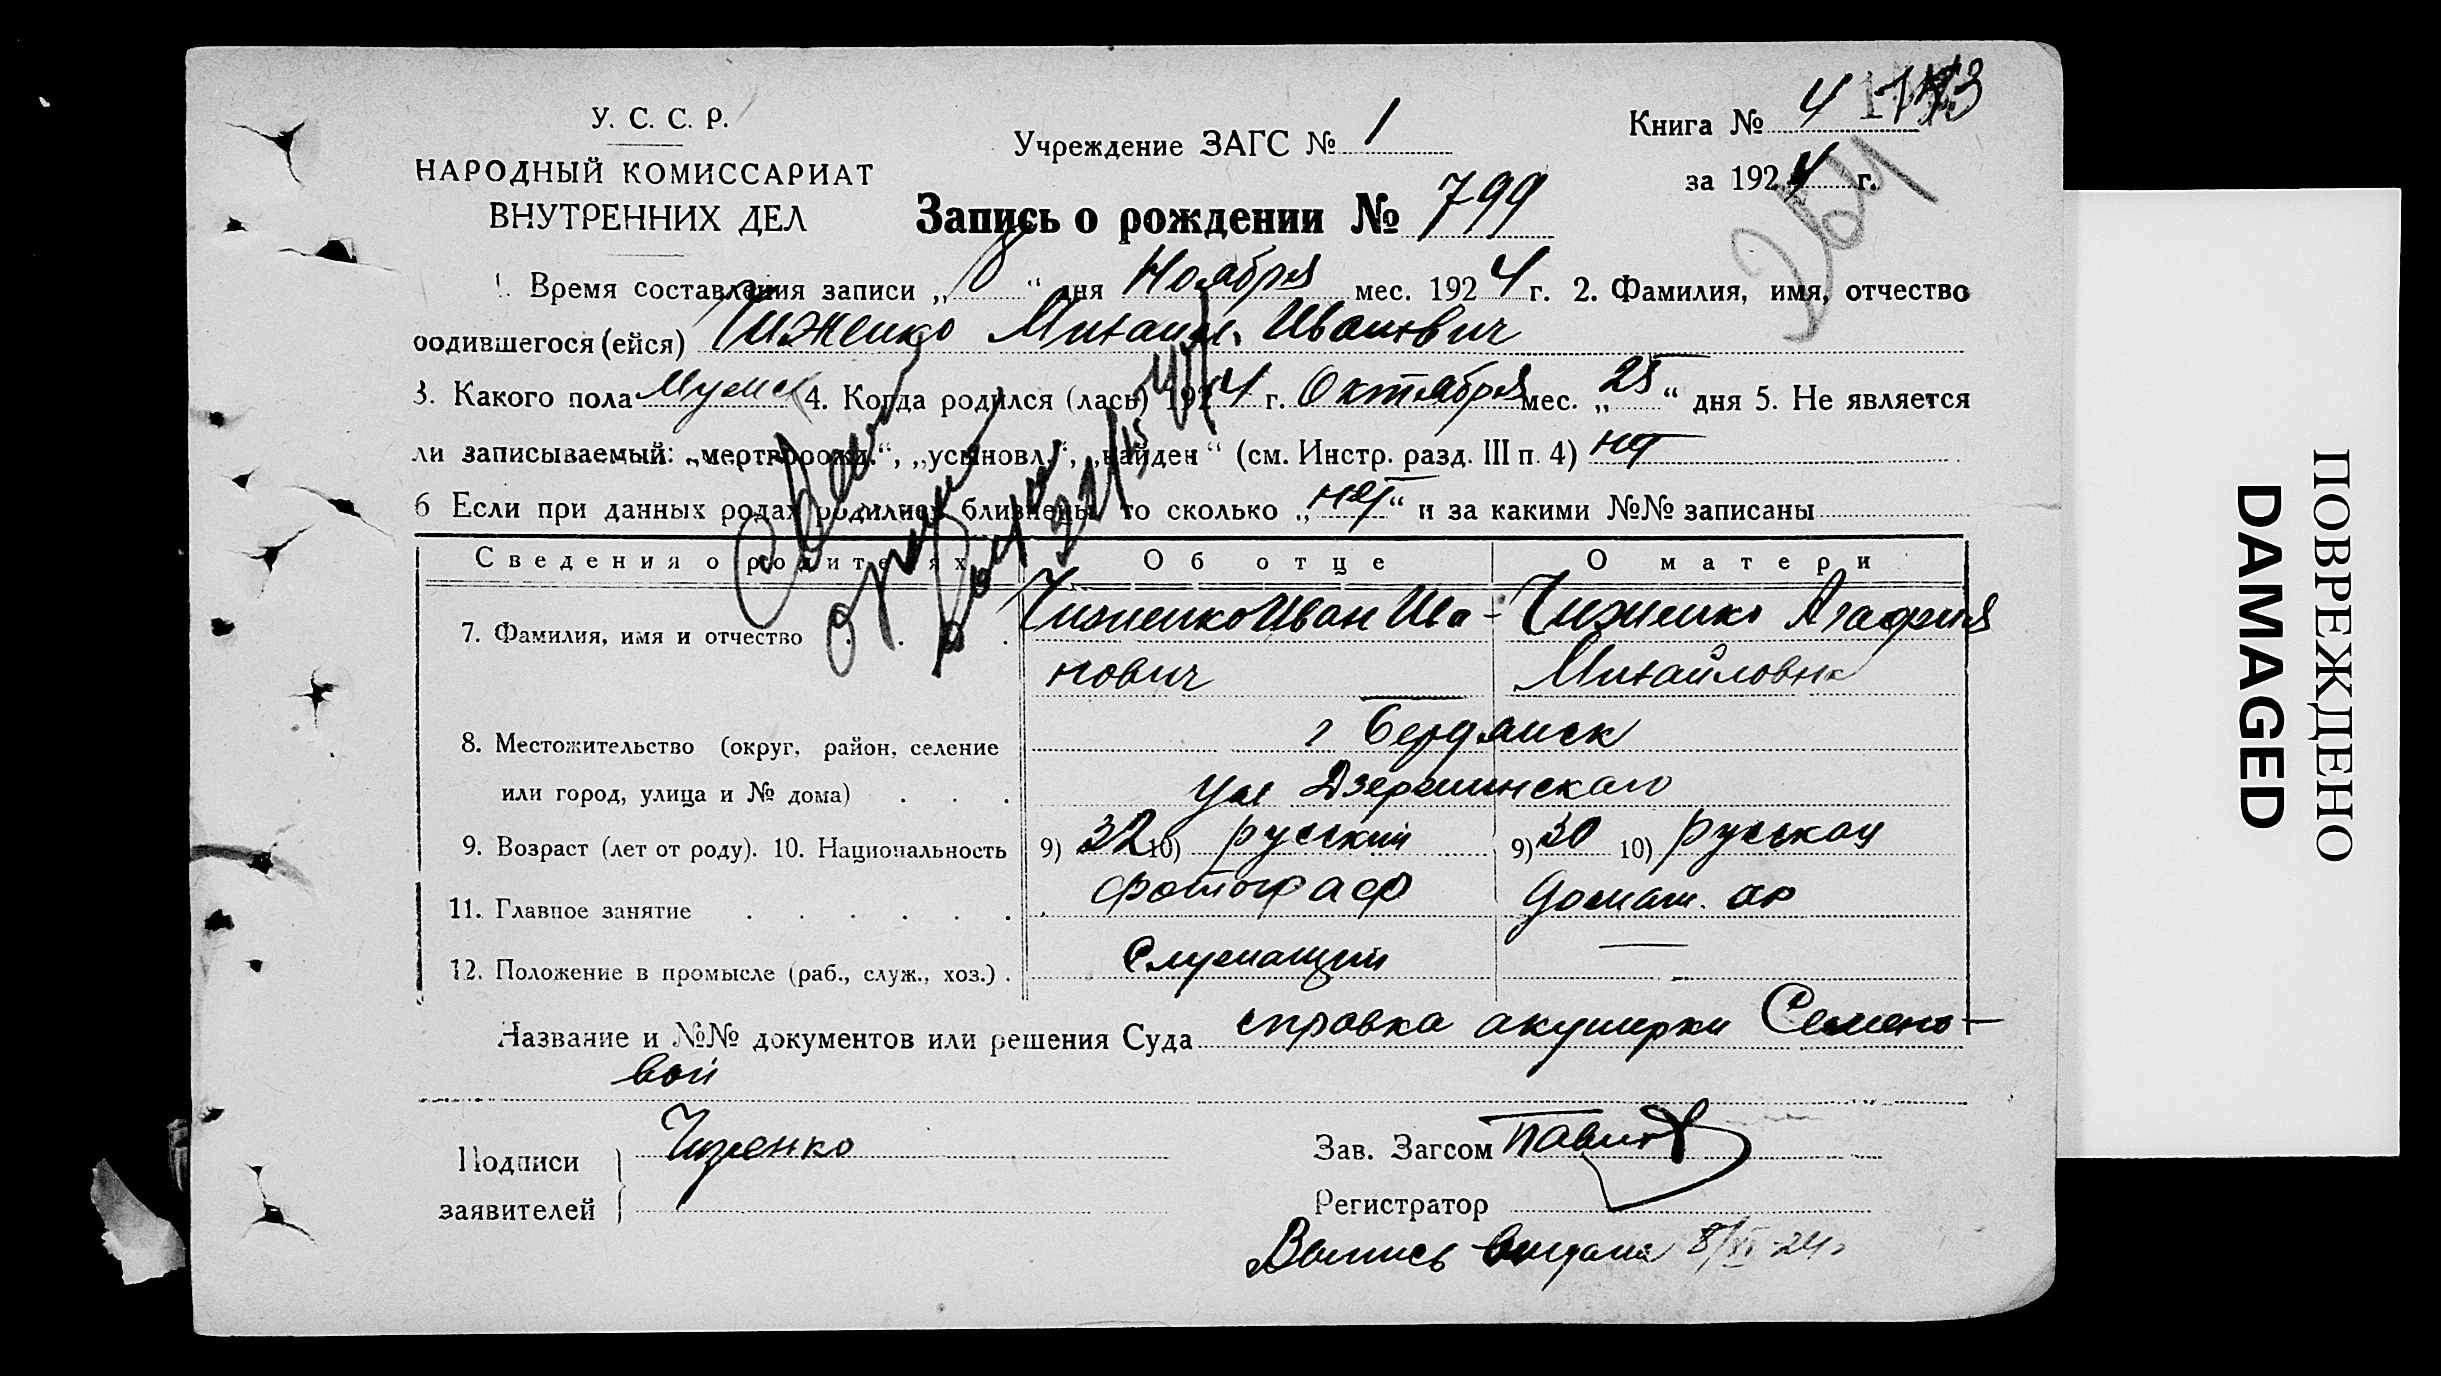 У. С. С. Р.
НАРОДНЫЙ КОМИССАРИАТ
ВНУТРЕННИХ ДЕЛ
Учреждение ЗАГС № 1
Книга № 4
за 1924 г.
264
Запись о рождении № 799
1. Время составления записи „8“ дня Ноября мес. 1924 г. 2. Фамилия, имя, отчество
родившегося (ейся) Чиженко Михаил Иванович
3. Какого пола Мужск 4. Когда родился (лась) 1924 г. Октября мес. „25“ дня 5. Не является
ли записываемый: „мертворожд.“, „усыновл.“, „найден“ (см. Инстр. разд. III п. 4) нет
6 Если при данных родах родились близнецы то сколько „нет“ и за какими №№ записаны
Сведения о родителях Об отце О матери
7. Фамилия, имя и отчество Чиженко Иван Ива-
нович
Чиженко Агафия
Михайловна
8. Местожительство (округ, район, селение
или город, улица и № дома)
г Бердянск
ул Дзержинскаго
9. Возраст (лет от роду). 10. Национальность 9) 32 10) русский 9) 30 10) руськая
11. Главное занятие фотограф домаш.
12. Положение в промысле (раб., служ., хоз.) Служащий —
Название и №№ документов или решения Суда справка акушерки Семено-
вой
Подписи
заявителей
Чиженко
Зав. Загсом
Регистратор
Выпись выдана 8/XI-24г
ПОВРЕЖДЕНО
DAMAGED